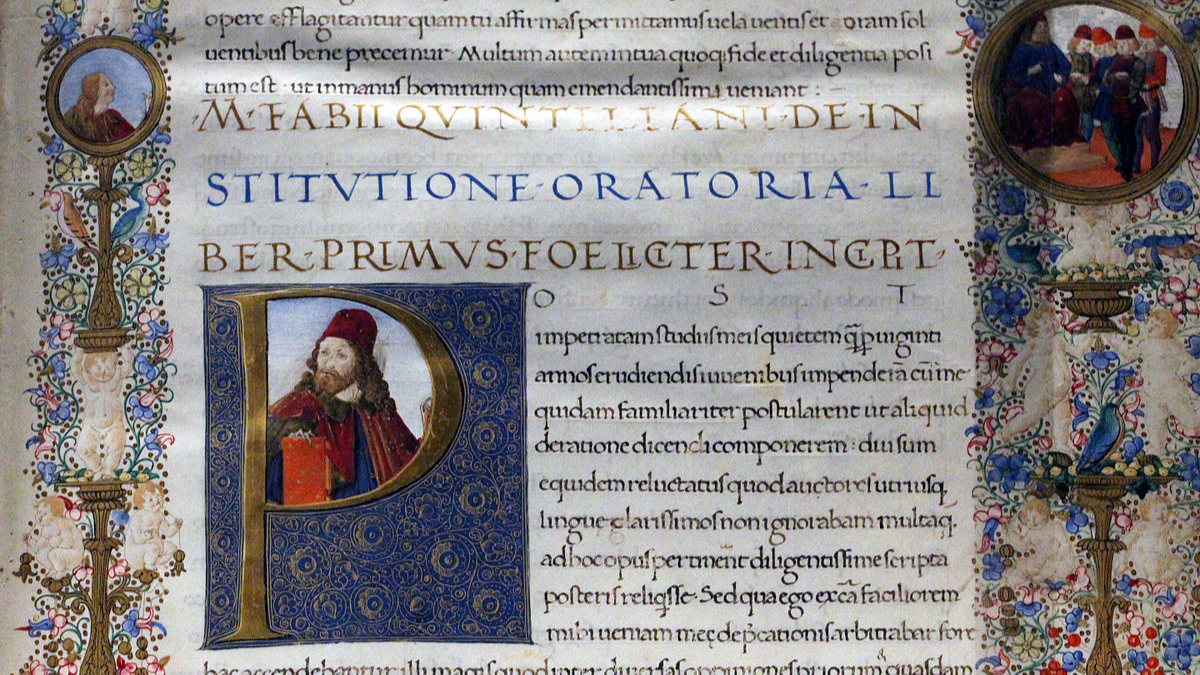 opere efflagitantur quam tu affirmas permittamus uela uentis et oram sol
uentibus bene precemur · Multum autem in tua quoq; fide et diligentia posi
tum est · ut in manus hominum quam emendatissimi ueniant :
· M · FABII QVINTILIANI · DE · IN
STITVTIONE · ORATORIA · LI
BER · PRIMVS · FOELICITER · INCIPIT ·
P O S T
impetratam studiis meis quietem q̃ p uiginti
annos erudiendis iuuenibus impenderā cū me
quidam familiariter postularent ut aliquid
de ratione dicendi componerem : diu sum
equidem reluctatus quod auctores utriusq;
lingue clarissimos non ignorabam multaq;
ad hoc opus pertineñt diligentissime scripta
posteris reliq̃sse · Sed qua ego ex cã faciliorem
mihi ueniam meę dep̃cationis arbitrabar fore
hac accendebantur illi magis quod inter diuersas opiniones priorum quasdam